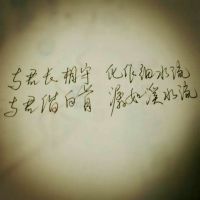 与君长相守 化作细水流
与君偕白首 潺如溪水流